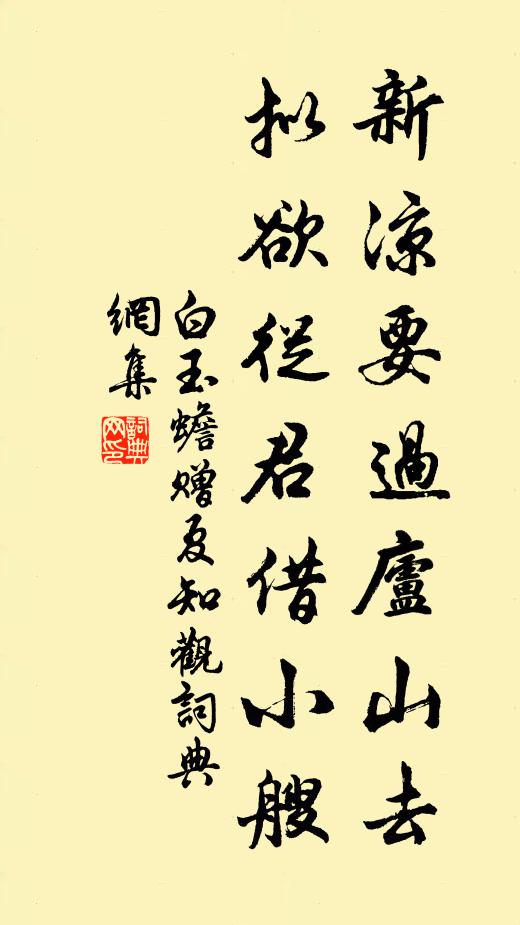 新涼要過廬山去
拟欲從君借小艘
白玉蟾赠夏知觀詞典
網集
詞典
网印